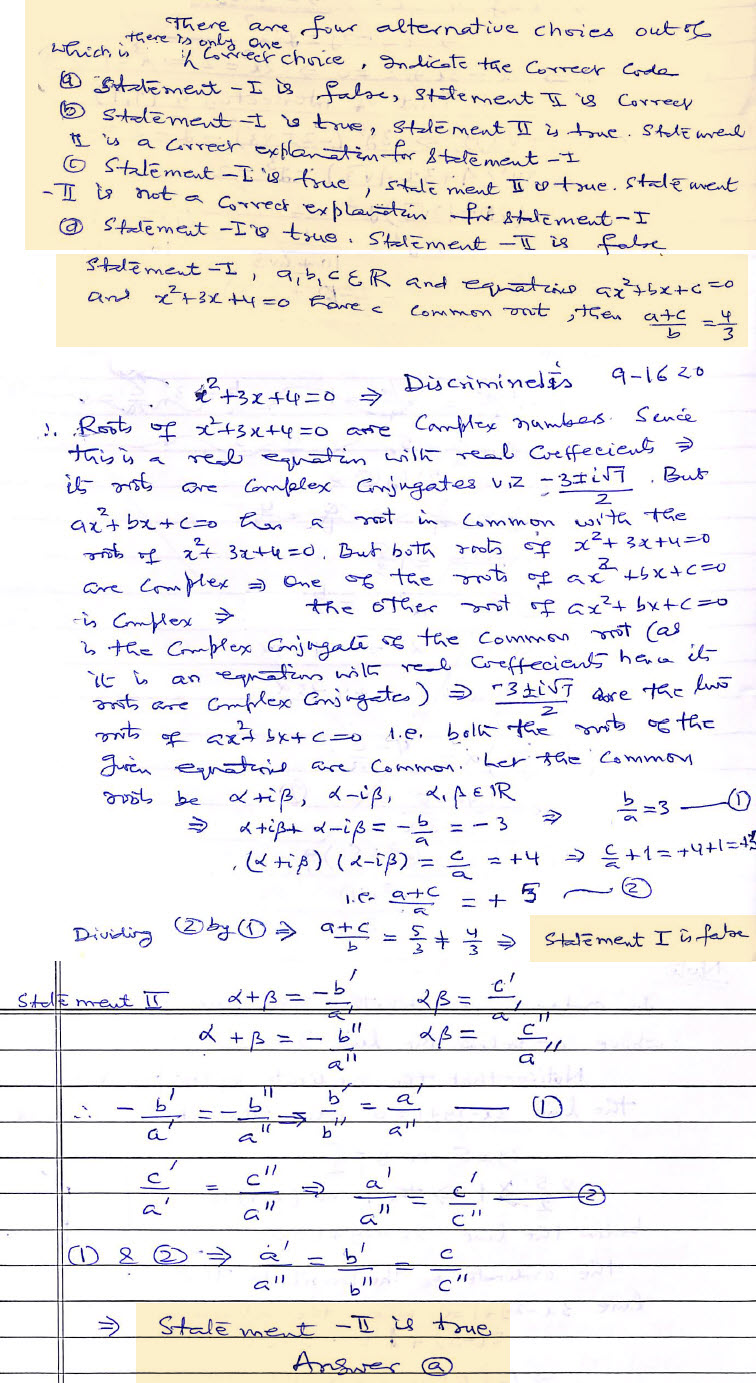 There are four alternative choies out of
which is there is only one
correct choice, Indicate the Correct Code
(a) Statement-I is false, Statement II is Correct
(b) Statement-I is true, Statement II is true. Statement
II is a Correct explanation for Statement-I
(c) Statement-I is true, Statement II is true. Statement
-II is not a Correct explanation for Statement-I
(d) Statement-I is true. Statement-II is false
Statement-I, a,b,c ∈ R and equations ax²+bx+c=0
and x²+3x+4=0 have a common root, then (a+c)/b = 4/3
x²+3x+4=0 ⇒ Discriminant is 9-16<0
∴ Roots of x²+3x+4=0 are Complex numbers. Since
this is a real equation with real Coeffecients ⇒
its roots are Complex Conjugates viz (-3±i√7)/2. But
ax²+bx+c=0 has a root in common with the
roots of x²+3x+4=0. But both roots of x²+3x+4=0
are Complex ⇒ One of the roots of ax²+bx+c=0
is Complex ⇒ the other root of ax²+bx+c=0
is the Complex Conjugate of the Common root (as
it is an equation with real Coeffecients hence its
roots are Complex Conjugates) ⇒ (-3±i√7)/2 are the two
roots of ax²+bx+c=0 i.e. both the roots of the
given equations are Common. Let the Common
roots be α+iβ, α-iβ, α,β∈R
⇒ α+iβ+α-iβ = -b/a = -3 ⇒ b/a = 3 — (1)
(α+iβ)(α-iβ) = c/a = +4 ⇒ c/a +1 = +4+1 = +5
i.e. (a+c)/a = +5 — (2)
Dividing (2) by (1) ⇒ (a+c)/b = 5/3 ≠ 4/3 ⇒ Statement I is false
Statement II α+β = -b'/a', αβ = c'/a'
α+β = -b''/a'' αβ = c''/a''
∴ -b'/a' = -b''/a'' ⇒ b'/b'' = a'/a'' — (1)
c'/a' = c''/a'' ⇒ a'/a'' = c'/c'' — (2)
(1) & (2) ⇒ a'/a'' = b'/b'' = c/c''
⇒ Statement-II is true
Answer (a)